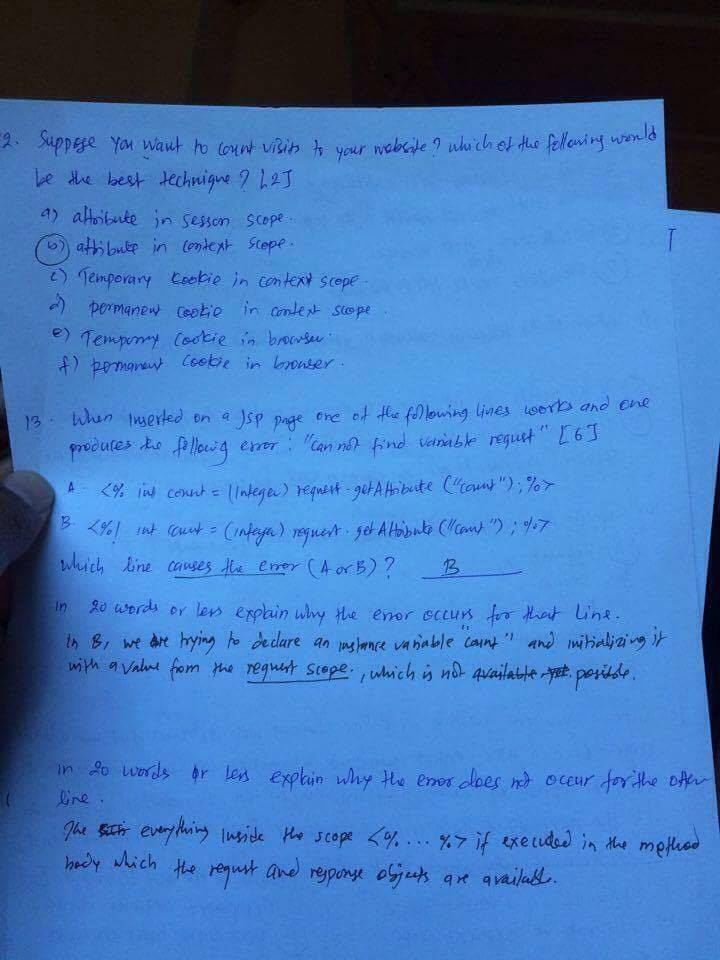 2. Suppose you want to count visits to your website? which of the following would
be the best technique? [2]
a) attribute in sesson scope.
b) attribute in context scope.
c) Temporary Cookie in context scope.
d) permanent cookie in context scope
e) Temporary cookie in browser.
f) permanent cookie in browser.
13. When inserted on a JSP page one of the following lines works and one
produces the following error: "can not find variable request" [6]
A. <% int count = (Integer) request.getAttribute ("count"); %>
B. <%! int count = (integer) request.getAttribute ("count"); %>
which line causes the error (A or B)? B
in 20 words or less explain why the error occurs for that line.
In B, we are trying to declare an instance variable "count" and initializing it
with a value from the request scope., which is not available yet. possible.
in 20 words or less explain why the error does not occur for the other
line.
The everything inside the scope <% ... %> if executed in the method
body which the request and response objects are available.